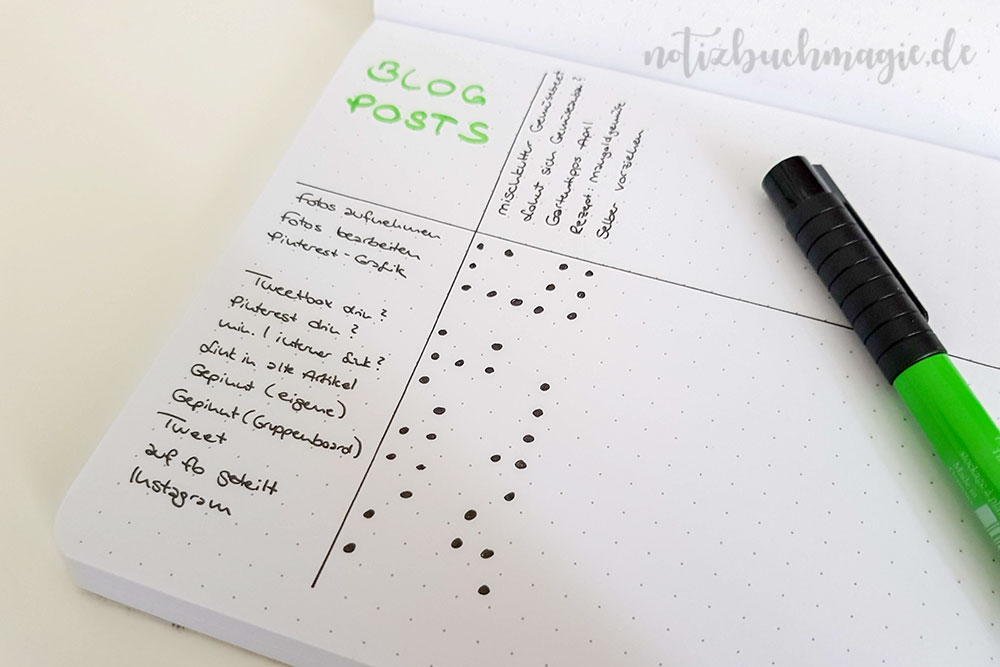 notizbuchmagie.de
BLOG
POSTS
Mischkultur Gemüsebeet
Lohnt sich Gemüseanbau?
Gartentipps April
Rezept: Mangoldgemüse
Selber vorziehen
Fotos aufnehmen
Fotos bearbeiten
Pinterest-Grafik
Tweetbox drin?
Pinterest drin?
min. 1 interner Link?
Link in alte Artikel
Gepinnt (eigene)
Gepinnt (Gruppenboard)
Tweet
auf fb geteilt
Instagram